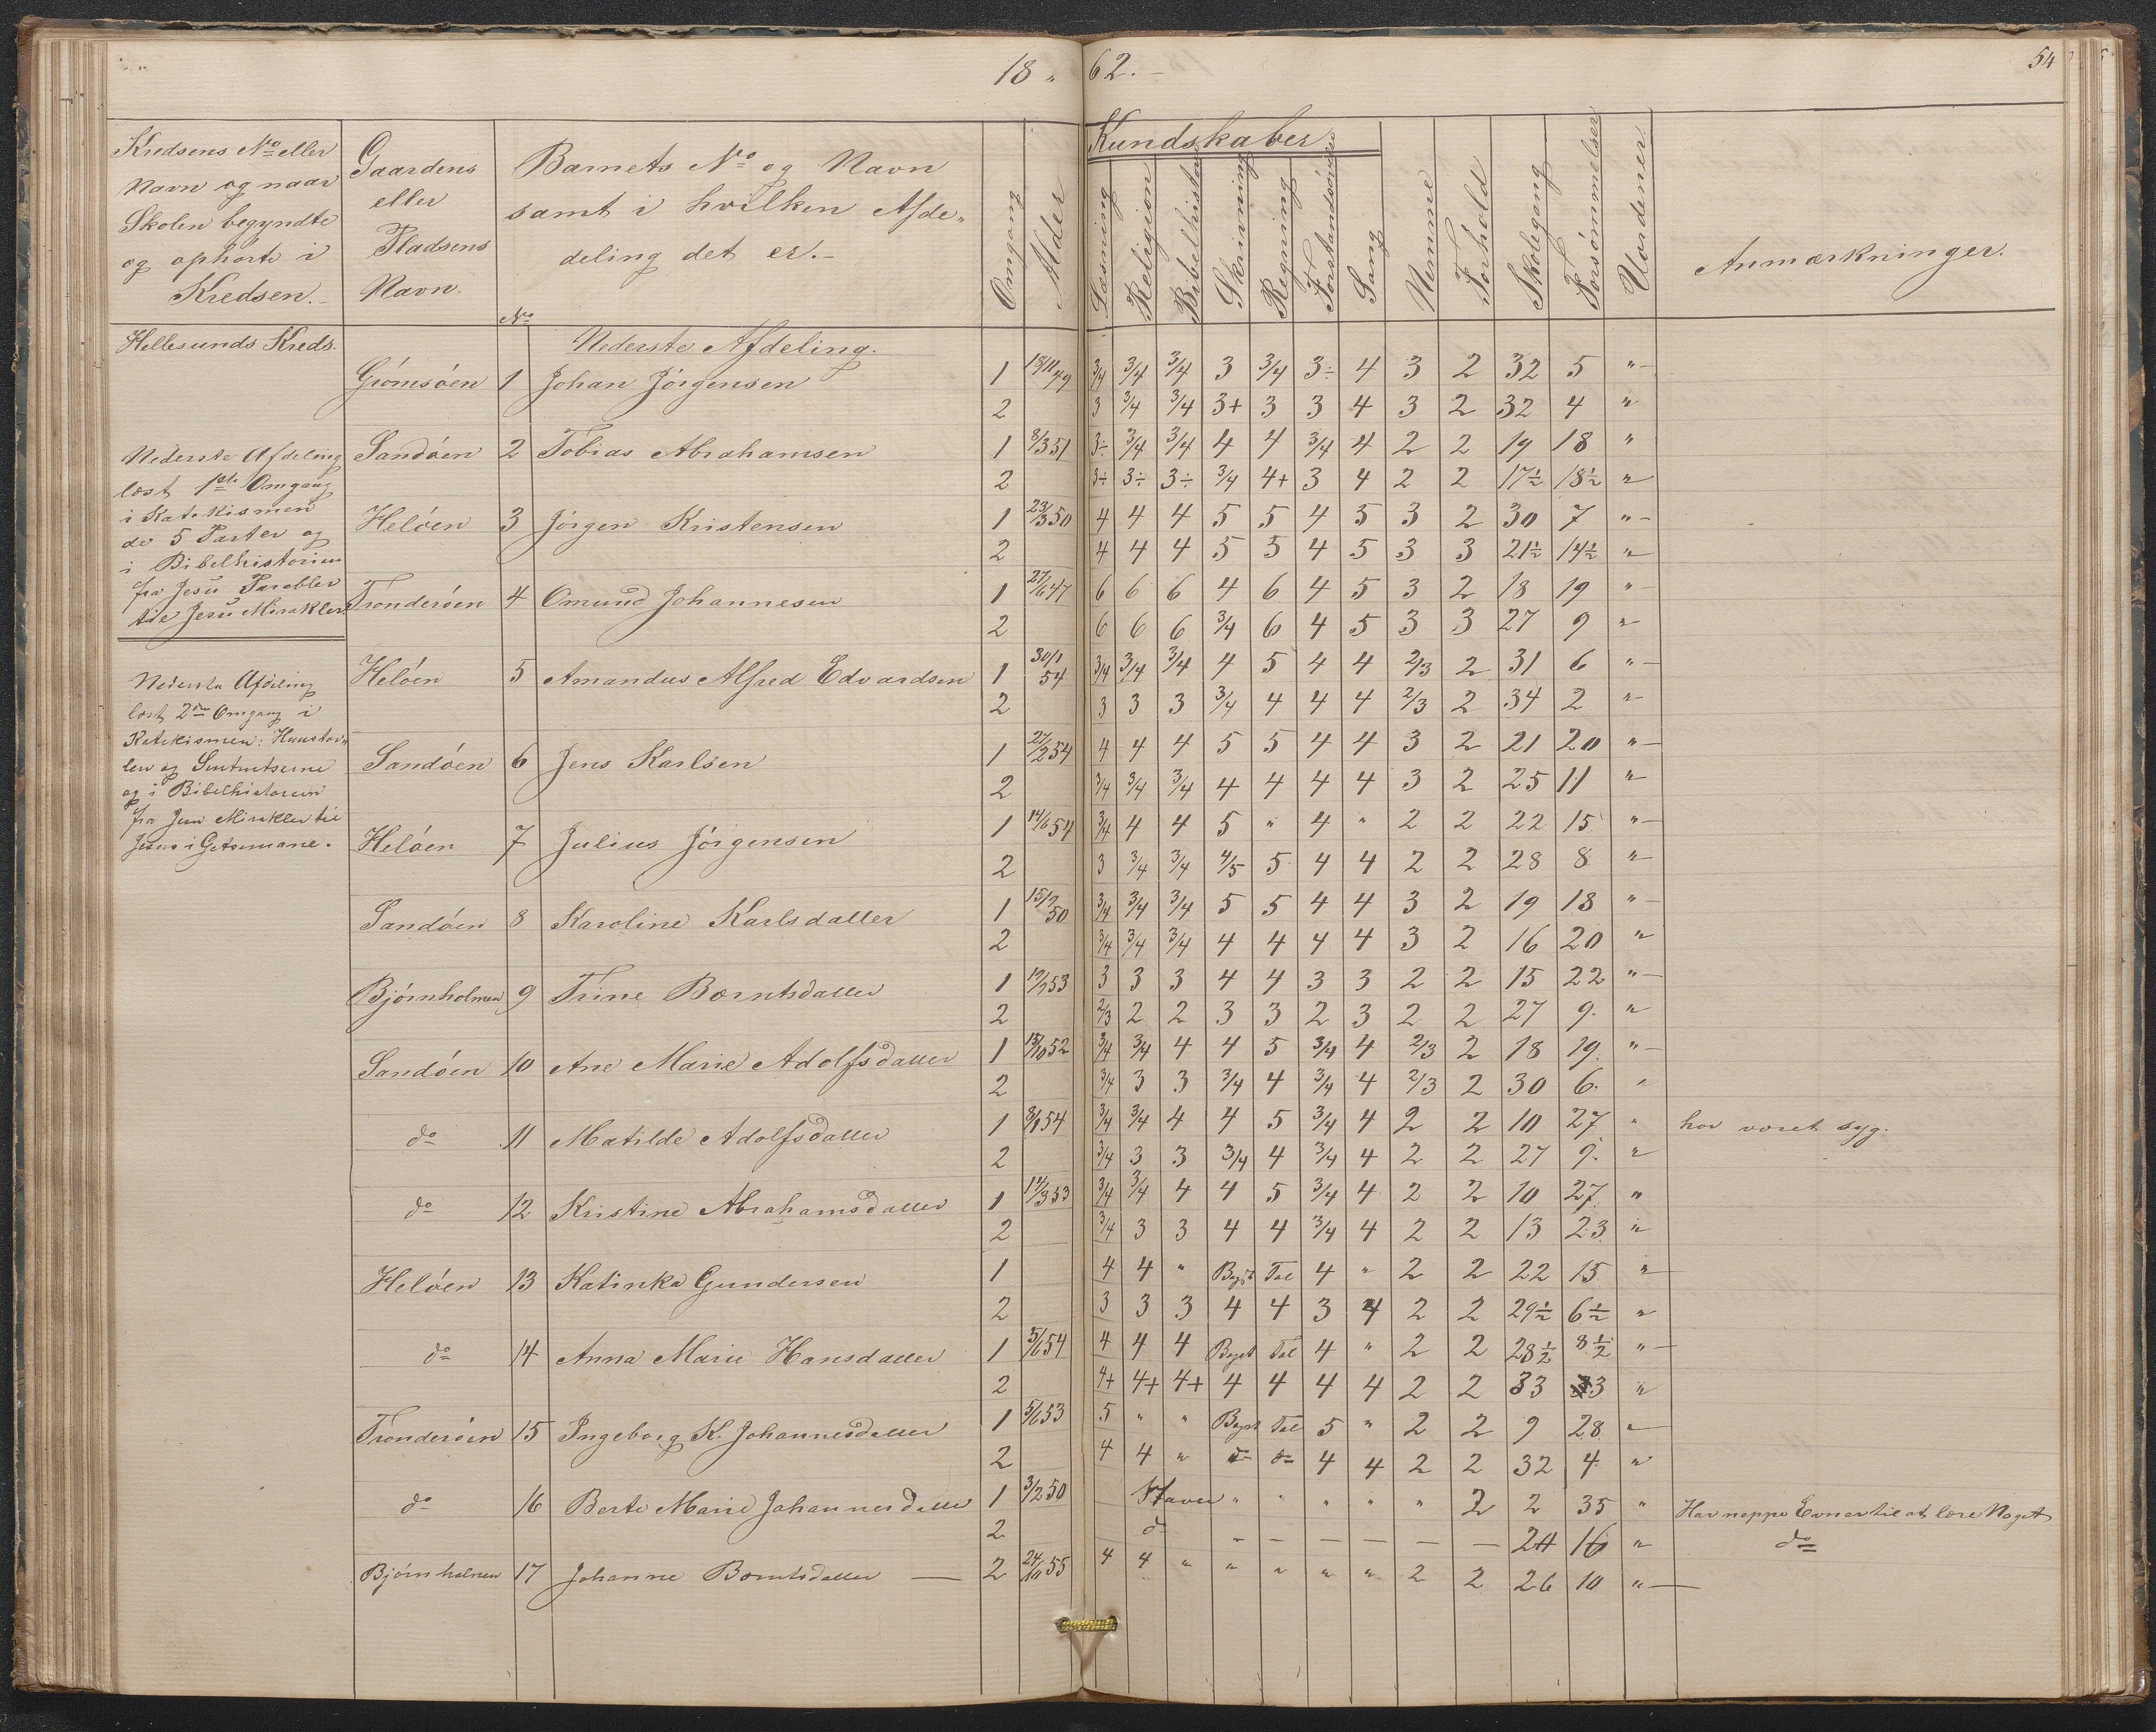 18 " 62.-
54
Kredsens No eller
Navn og naar
Skolen begyndte
og ophørte i
Kredsen.-
Gaardens
eller
Pladsens
Navn.
Barnets No og Navn
samt i hvilken Afde-
deling det er.-
Omgang
Alder
Kundskaber
Læsning
Religion
Bibelhistorie
Skrivning
Regning
Forstandsøvelse
Sang
Nemme
Forhold
Skolegang
Forsømmelser
Uordener
Anmærkninger.
No
Hellesunds Kreds.
Nederste Afdeling.
Grömsöen 1 Johan Jörgensen 1 18/11 49 3/4 3/4 3/4 3 3/4 3÷ 4 3 2 32 5 "
2 3 3/4 3/4 3+ 3 3 4 3 2 32 4 "
Sandöen 2 Tobias Abrahamsen 1 8/3 51 3÷ 3/4 3/4 4 4 3/4 4 2 2 19 18 "
2 3÷ 3÷ 3÷ 3/4 4+ 3 4 2 2 17½ 18½ "
Helöen 3 Jörgen Kristensen 1 23/3 50 4 4 4 5 5 4 5 3 2 30 7 "
2 4 4 4 5 5 4 5 3 3 21½ 14½ "
Tronderöen 4 Omund Johannesen 1 27/6 47 6 6 6 4 6 4 5 3 2 18 19 "
2 6 6 6 3/4 6 4 5 3 3 27 9 "
Helöen 5 Amandus Alfred Edvardsen 1 30/1 54 3/4 3/4 3/4 4 5 4 4 2/3 2 31 6 "
2 3 3 3 3/4 4 4 4 2/3 2 34 2 "
Sandöen 6 Jens Karlsen 1 27/2 54 4 4 4 5 5 4 4 3 2 21 20 "
2 3/4 3/4 3/4 4 4 4 4 3 2 25 11 "
Helöen 7 Julius Jörgensen 1 14/6 54 3/4 4 4 5 " 4 " 2 2 22 15 "
2 3 3/4 3/4 4/5 5 4 4 2 2 28 8 "
Sandöen 8 Karoline Karlsdatter 1 50 3/4 3/4 3/4 5 5 4 4 3 2 19 18 "
2 3/4 3/4 3/4 4 4 4 4 3 2 16 20 "
Björnholmen 9 Trine Bærntsdatter 1 53 3 3 3 4 4 3 3 2 2 15 22 "
2 2/3 2 2 3 3 2 3 2 2 27 9. "
Sandöen 10 Ane Marie Adolfsdatter 1 52 3/4 3/4 4 4 5 3/4 4 2/3 2 18 19. "
2 3/4 3 3 3/4 4 3/4 4 2/3 2 30 6. "
do 11 Matilde Adolfsdatter 1 54 3/4 3/4 4 4 5 3/4 4 2 2 10 27 " har været syg.
2 3/4 3 3 3/4 4 3/4 4 2 2 27 9. "
do 12 Kristine Abrahamsdatter 1 53 3/4 3/4 4 4 5 3/4 4 2 2 10 27. "
2 3/4 3 3 4 4 3/4 4 2 2 13 23 "
Helöen 13 Katinka Gundersen 1 4 4 " Bogst Tal 4 " 2 2 22 15 "
2 3 3 3 4 4 3 4 2 2 29½ 6½ "
do 14 Anna Marie Hansdatter 1 54 4 4 4 Bogst Tal 4 " 2 2 28½ 8½ "
2 4+ 4+ 4+ 4 4 4 4 2 2 33 3 "
Tronderöen 15 Ingeborg K. Johannesdatter 1 5/6 53 5 " " Bogst Tal 5 " 2 2 9 28 "
2 4 4 " do do 4 4 2 2 32 4 "
do 16 Berte Marie Johannesdatter 1 3/2 50 Staver " " " " " 2 2 35 " Har neppe Evner til at lære Noget
2 do - - - - - - 2 16 " do
Björnholmen 17 Johanne Bærntsdatter — 2 24/10 55 4 4 " " " " " 2 2 26 10 "
Nederste Afdeling
læst 1ste Omgang
i Katekismen
de 5 Parter og
i Bibelhistorien
fra Jesu Parabler
til Jesu Mirakler
Nederste Afdeling
læst 2den Omgang i
Katekismen: Huustav-
len og Sententserne
og i Bibelhistorien
fra Jesu Mirakler til
Jesus i Getsemane.